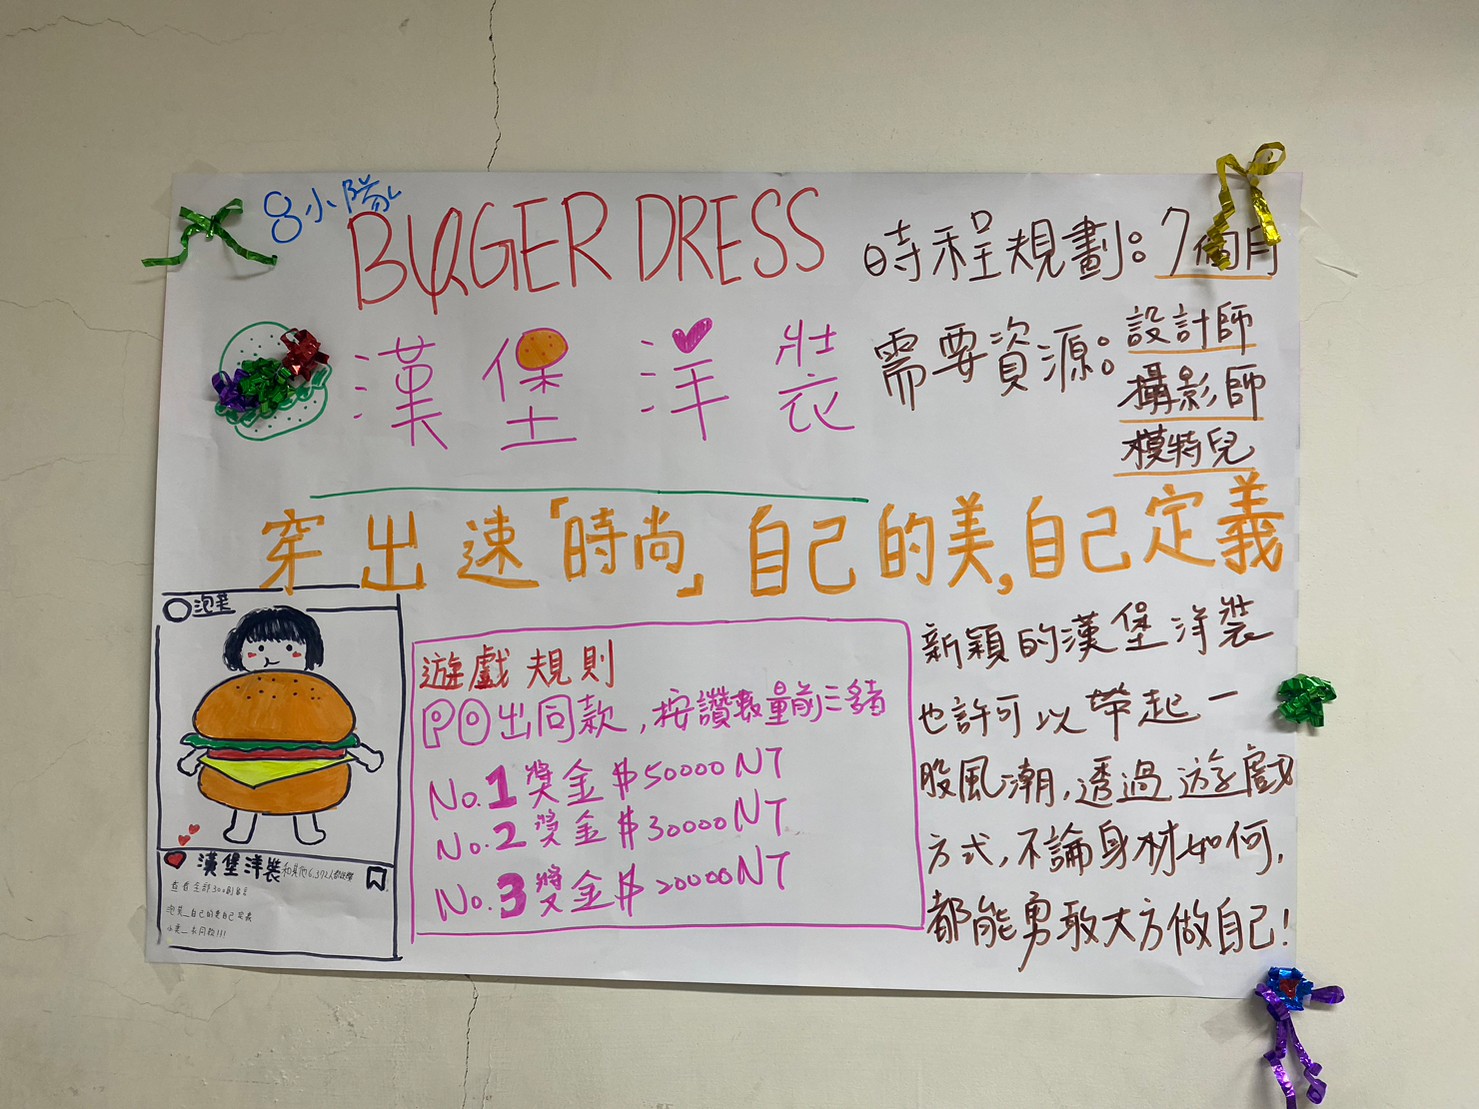 8小隊
BURGER DRESS
漢堡洋裝
時程規劃：7個月
需要資源：設計師
攝影師
模特兒
穿出速「時尚」自己的美，自己定義
泡芙
漢堡洋裝
遊戲規則
PO出同款，按讚數量前三豬
No.1 獎金 $50000 NT
No.2 獎金 $30000 NT
No.3 獎金 $20000 NT
新穎的漢堡洋裝
也許可以帶起一
股風潮，透過遊戲
方式，不論身材如何，
都能勇敢大方做自己！